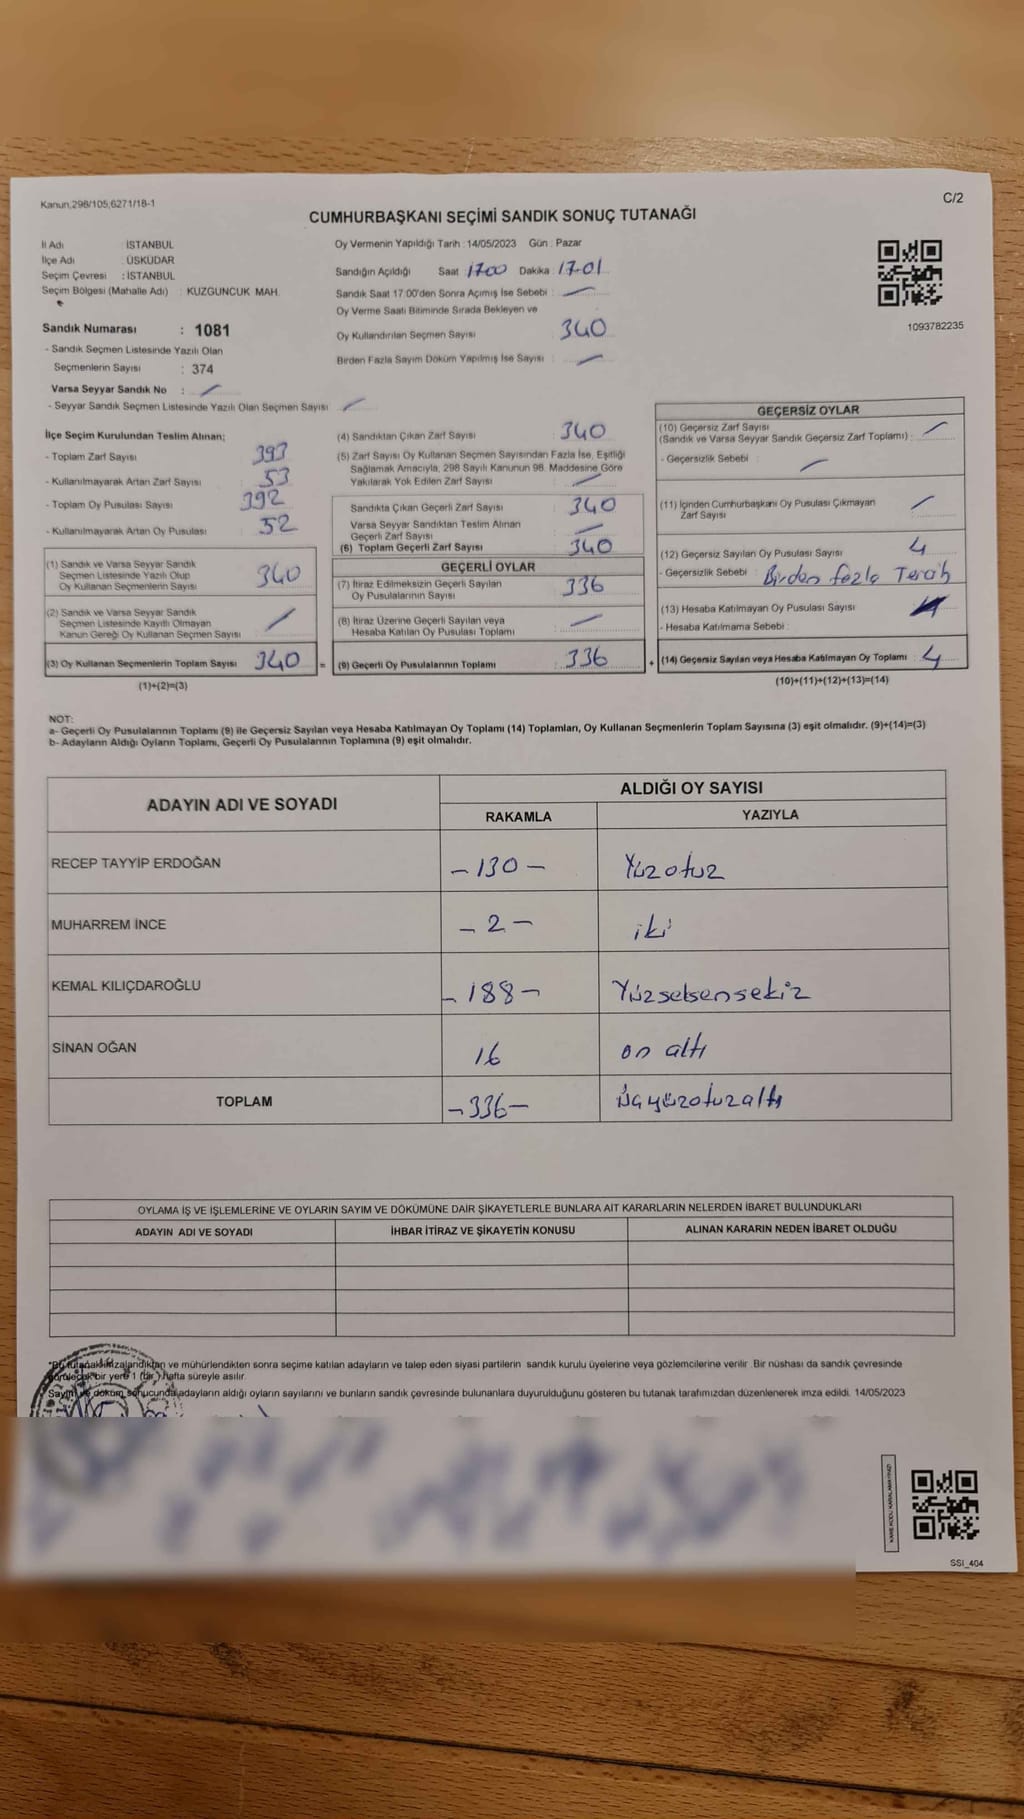 Kanun;298/105,6271/18-1
C/2
CUMHURBAŞKANI SEÇİMİ SANDIK SONUÇ TUTANAĞI
İl Adı : İSTANBUL
İlçe Adı : ÜSKÜDAR
Seçim Çevresi : İSTANBUL
Seçim Bölgesi (Mahalle Adı) : KUZGUNCUK MAH.
Sandık Numarası : 1081
- Sandık Seçmen Listesinde Yazılı Olan
Seçmenlerin Sayısı : 374
Varsa Seyyar Sandık No :
- Seyyar Sandık Seçmen Listesinde Yazılı Olan Seçmen Sayısı
Oy Vermenin Yapıldığı Tarih : 14/05/2023 Gün : Pazar
Sandığın Açıldığı Saat 17:00 Dakika : 17.01
Sandık Saat 17:00'den Sonra Açımış İse Sebebi :
Oy Verme Saati Bitiminde Sırada Bekleyen ve
Oy Kullandırılan Seçmen Sayısı 340
Birden Fazla Sayım Döküm Yapılmış İse Sayısı :
1093782235
İlçe Seçim Kurulundan Teslim Alınan;
- Toplam Zarf Sayısı 393
- Kullanılmayarak Artan Zarf Sayısı : 53
- Toplam Oy Pusulası Sayısı : 392
- Kullanılmayarak Artan Oy Pusulası : 52
(1) Sandık ve Varsa Seyyar Sandık
Seçmen Listesinde Yazılı Olup
Oy Kullanan Seçmenlerin Sayısı 340
(2) Sandık ve Varsa Seyyar Sandık
Seçmen Listesinde Kayıtlı Olmayan
Kanun Gereği Oy Kullanan Seçmen Sayısı
(3) Oy Kullanan Seçmenlerin Toplam Sayısı 340 =
(1)+(2)=(3)
(4) Sandıktan Çıkan Zarf Sayısı : 340
(5) Zarf Sayısı Oy Kullanan Seçmen Sayısından Fazla İse, Eşitliği
Sağlamak Amacıyla, 298 Sayılı Kanunun 98. Maddesine Göre
Yakılarak Yok Edilen Zarf Sayısı :
Sandıkta Çıkan Geçerli Zarf Sayısı : 340
Varsa Seyyar Sandıktan Teslim Alınan
Geçerli Zarf Sayısı :
(6) Toplam Geçerli Zarf Sayısı : 340
GEÇERLİ OYLAR
(7) İtiraz Edilmeksizin Geçerli Sayılan
Oy Pusulalarının Sayısı : 336
(8) İtiraz Üzerine Geçerli Sayılan veya
Hesaba Katılan Oy Pusulası Toplamı :
(9) Geçerli Oy Pusulalarının Toplamı : 336 +
GEÇERSİZ OYLAR
(10) Geçersiz Zarf Sayısı
(Sandık ve Varsa Seyyar Sandık Geçersiz Zarf Toplamı) :
- Geçersizlik Sebebi :
(11) İçinden Cumhurbaşkanı Oy Pusulası Çıkmayan
Zarf Sayısı
(12) Geçersiz Sayılan Oy Pusulası Sayısı : 4
- Geçersizlik Sebebi : Birden fazla Tercih
(13) Hesaba Katılmayan Oy Pusulası Sayısı
- Hesaba Katılmama Sebebi :
(14) Geçersiz Sayılan veya Hesaba Katılmayan Oy Toplamı : 4
(10)+(11)+(12)+(13)=(14)
NOT:
a- Geçerli Oy Pusulalarının Toplamı (9) ile Geçersiz Sayılan veya Hesaba Katılmayan Oy Toplamı (14) Toplamları, Oy Kullanan Seçmenlerin Toplam Sayısına (3) eşit olmalıdır. (9)+(14)=(3)
b- Adayların Aldığı Oyların Toplamı, Geçerli Oy Pusulalarının Toplamına (9) eşit olmalıdır.
ADAYIN ADI VE SOYADI ALDIĞI OY SAYISI
RAKAMLA YAZIYLA
RECEP TAYYİP ERDOĞAN - 130 - Yüzotuz
MUHARREM İNCE - 2 - iki
KEMAL KILIÇDAROĞLU - 188 - Yüzseksensekiz
SİNAN OĞAN 16 on altı
TOPLAM - 336 - üçyüzotuzaltı
OYLAMA İŞ VE İŞLEMLERİNE VE OYLARIN SAYIM VE DÖKÜMÜNE DAİR ŞİKAYETLERLE BUNLARA AİT KARARLARIN NELERDEN İBARET BULUNDUKLARI
ADAYIN ADI VE SOYADI İHBAR İTİRAZ VE ŞİKAYETİN KONUSU ALINAN KARARIN NEDEN İBARET OLDUĞU
*Bu tutanak imzalandıktan ve mühürlendikten sonra seçime katılan adayların ve talep eden siyasi partilerin sandık kurulu üyelerine veya gözlemcilerine verilir. Bir nüshası da sandık çevresinde
görülecek bir yere 1 (bir) hafta süreyle asılır.
Sayım ve döküm sonucunda adayların aldığı oyların sayılarını ve bunların sandık çevresinde bulunanlara duyurulduğunu gösteren bu tutanak tarafımızdan düzenlenerek imza edildi. 14/05/2023
SSI_404